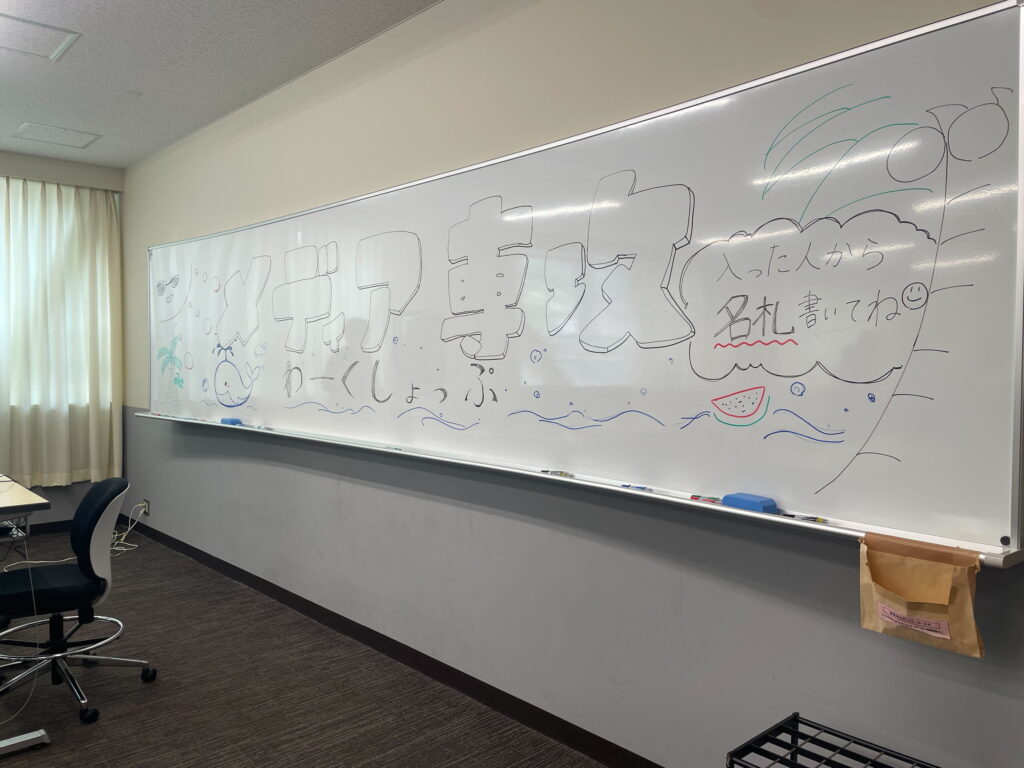 メディア専攻
わーくしょっぷ
入った人から
名札書いてね